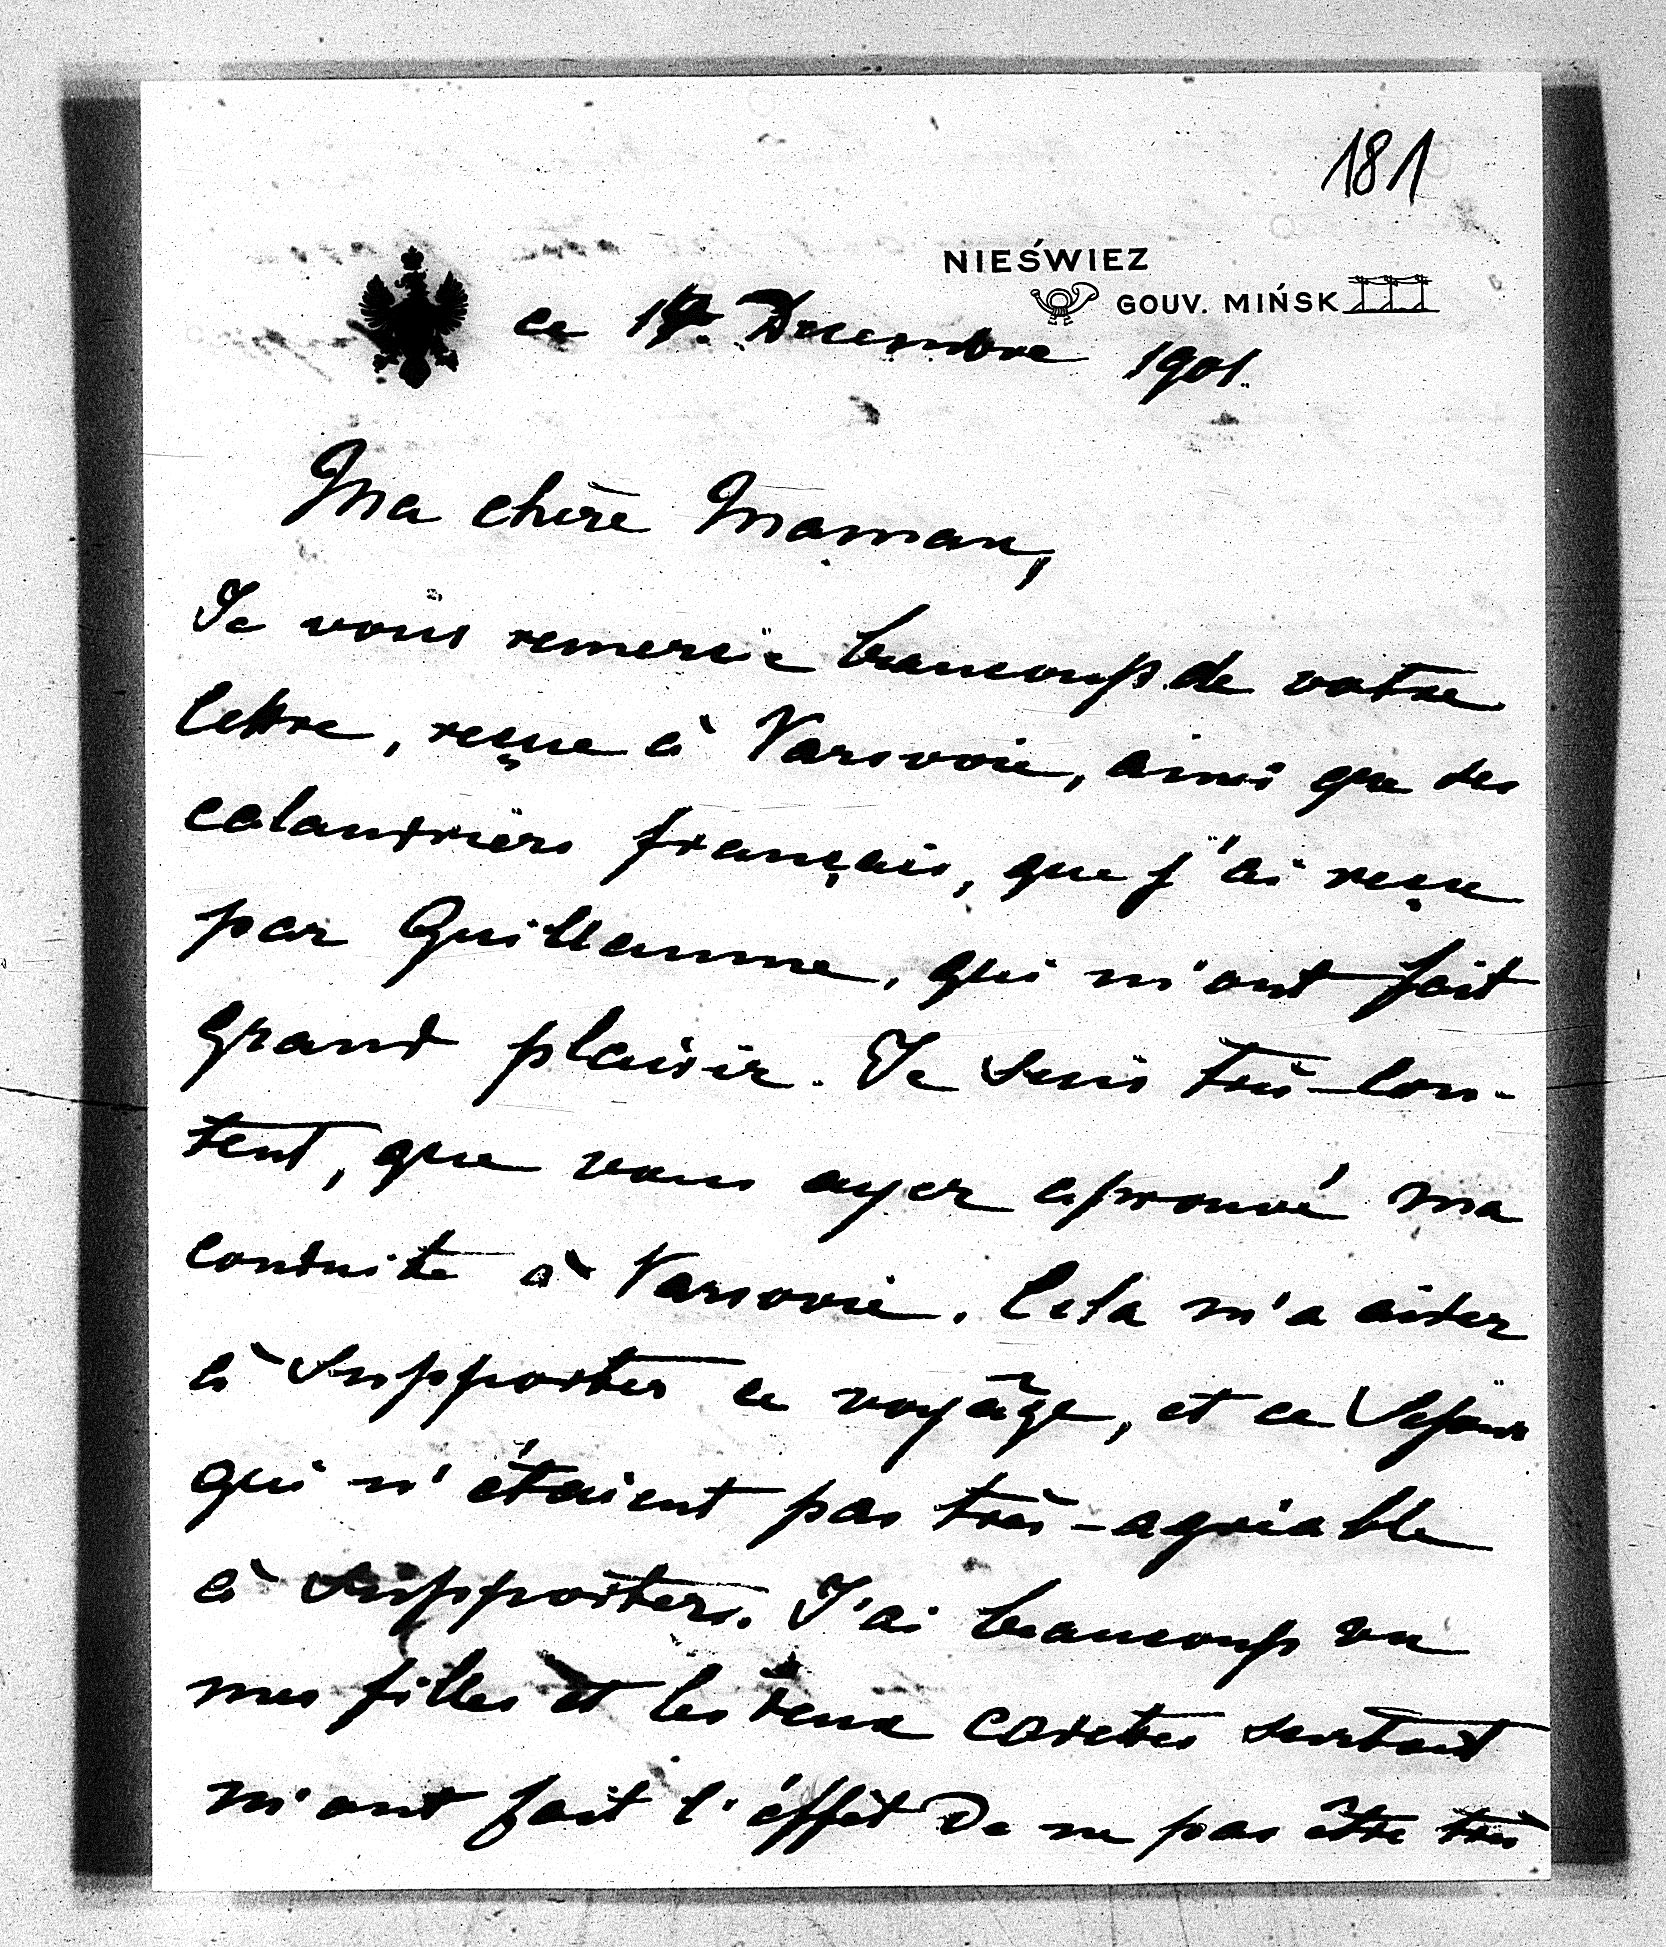 181
NIEŚWIEZ
GOUV. MIŃSK
ce Decembre 1901.
Ma chère Maman,
Je vous remercie beaucoup de votre
lettre, reçue à Varsovie, ainsi que des
calandriers français, que j'ai reçu
par Guillaume, qui m'ont fait
grand plaisir. Je suis très-con-
tent, que vous ayez aprouvé ma
conduite à Varsovie. Cela m'a aider
à supporter ce voyage, et ce sejour
qui n'étaient pas très-agréable
à supporters. J'ai beaucoup vu
mes filles et les deux cadettes surtout
m'ont fait l'éffet de ne pas être très